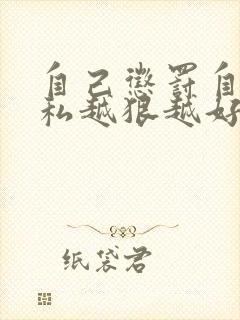 自己懲罰自
私越狠越好
纸袋君